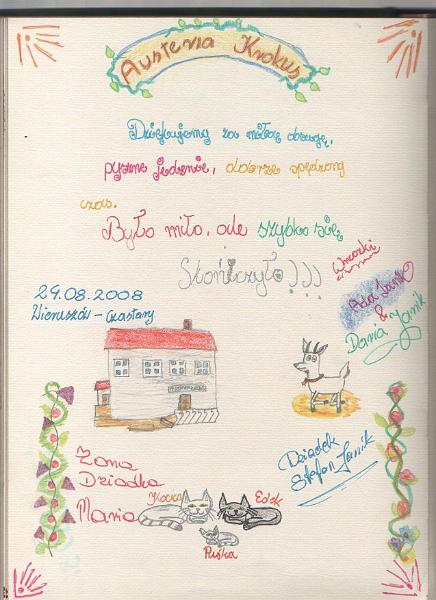 Austeria Krokus
Dziękujemy za miłą obsugę,
pyszne jedzenie, dobrze spędzony
czas.
Było miło, ale szybko się
Skończyło!)))
Wnuczki
Ada Janik
&
Daria Janik
29.08.2008
Wieruszów - Czastary
Dziadek
Stefan Janik
Żona
Dziadka
Maria
Kocka
Edek
Puśka